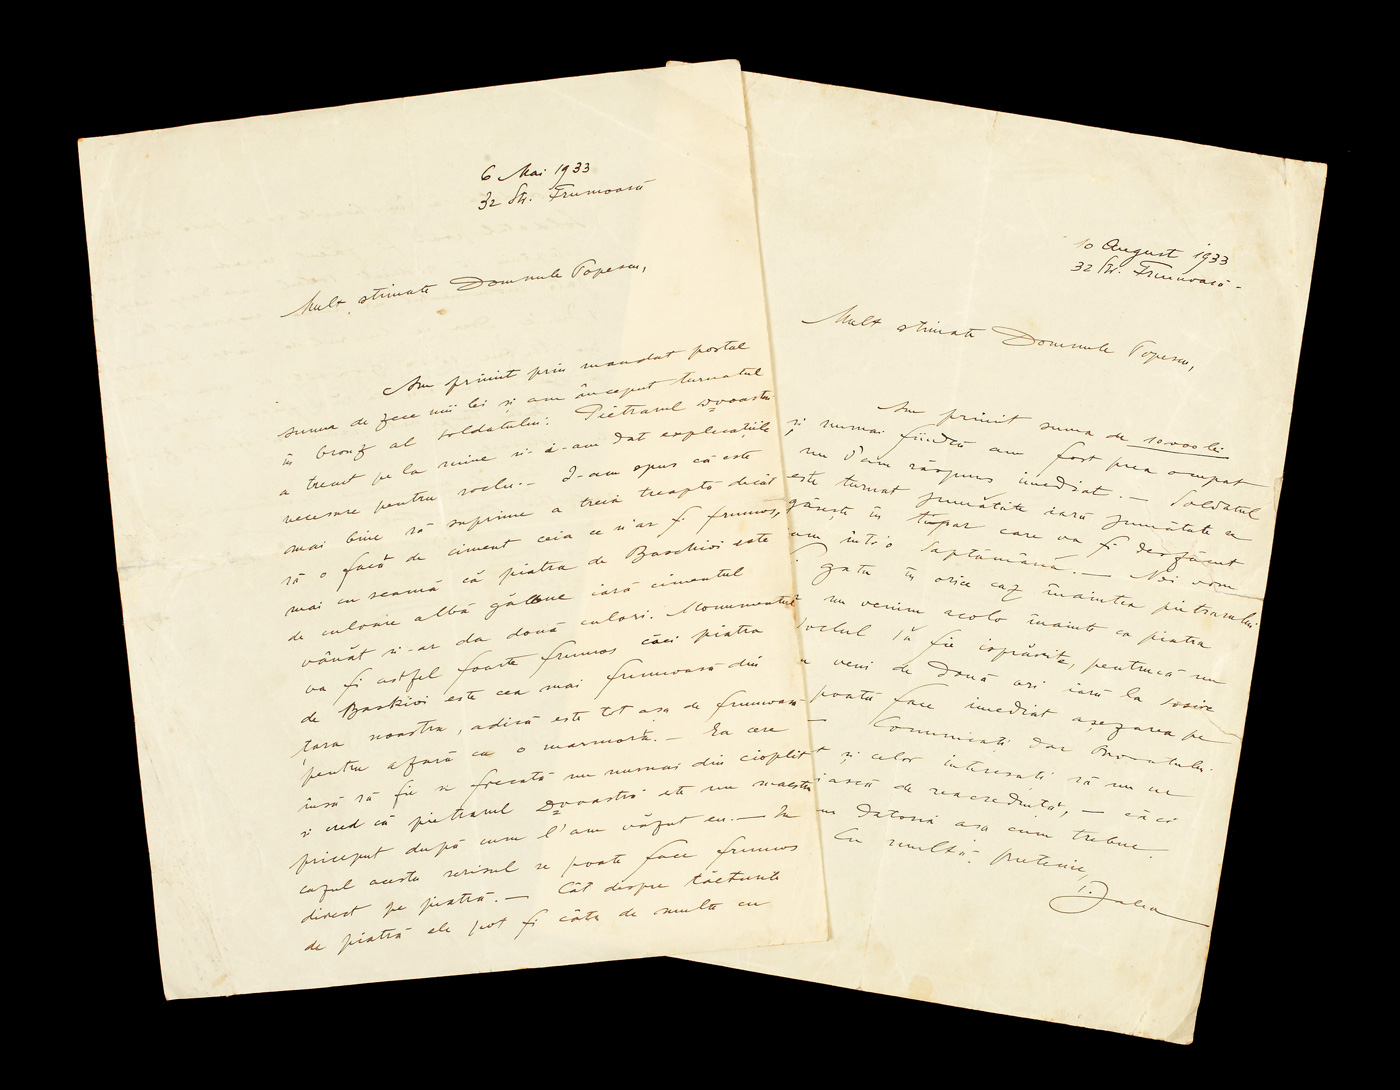 6 Mai 1933
32 Str. Frumoasă
Mult stimate Domnule Popescu,
Am primit prin mandat postal
suma de zece mii lei și am început turnatul
în bronz al soldatului. Pietrarul Dvoastră
a trecut pe la mine si i-am dat explicațiile
necesare pentru soclu.- I-am spus că este
mai bine să suprime a treia treaptă decât
să o facă de ciment ceia ce n'ar fi frumos,
mai cu seamă că piatra de Baschioi este
de culoare albă iară cimentul
vânăt si-ar da două culori. Monumentul
va fi astfel foarte frumos căci piatra
de Baskioi este cea mai frumoasă din
țara noastra, adică este tot asa de frumoasă
pentru afară ca o marmoră.- Ea cere
insă să fie si frecată nu numai din cioplit
si cred că pietrarul Dvoastră este un maestru
priceput după cum l'am văzut eu.- In
cazul acesta scrisul se poate face frumos
direct pe piatră.- Cât despre
de piatră ele pot fi câte de multe cu
10 August 1933
32 Str. Frumoasă-
Mult stimate Domnule Popescu,
Am primit suma de 10.000 lei
și numai fiindcă am fost prea ocupat
nu V'am răspuns imediat.- Soldatul
este turnat jumătate iară jumătate se
găsește în tipar care va fi desfăcut
într'o Saptămână.- Noi vom
gata în orice caz înaintea pietrarului
nu venim acolo înainte ca piatra
soclul să fie isprăvite, pentrucă nu
veni de două ori iară la sosire
poată face imediat așezarea pe
- Comunicati dar Avocatului
și celor interesați să nu ne
de reacredință, - căci
datoria asa cum trebue.
Cu multă prietenie,
I. Jalea